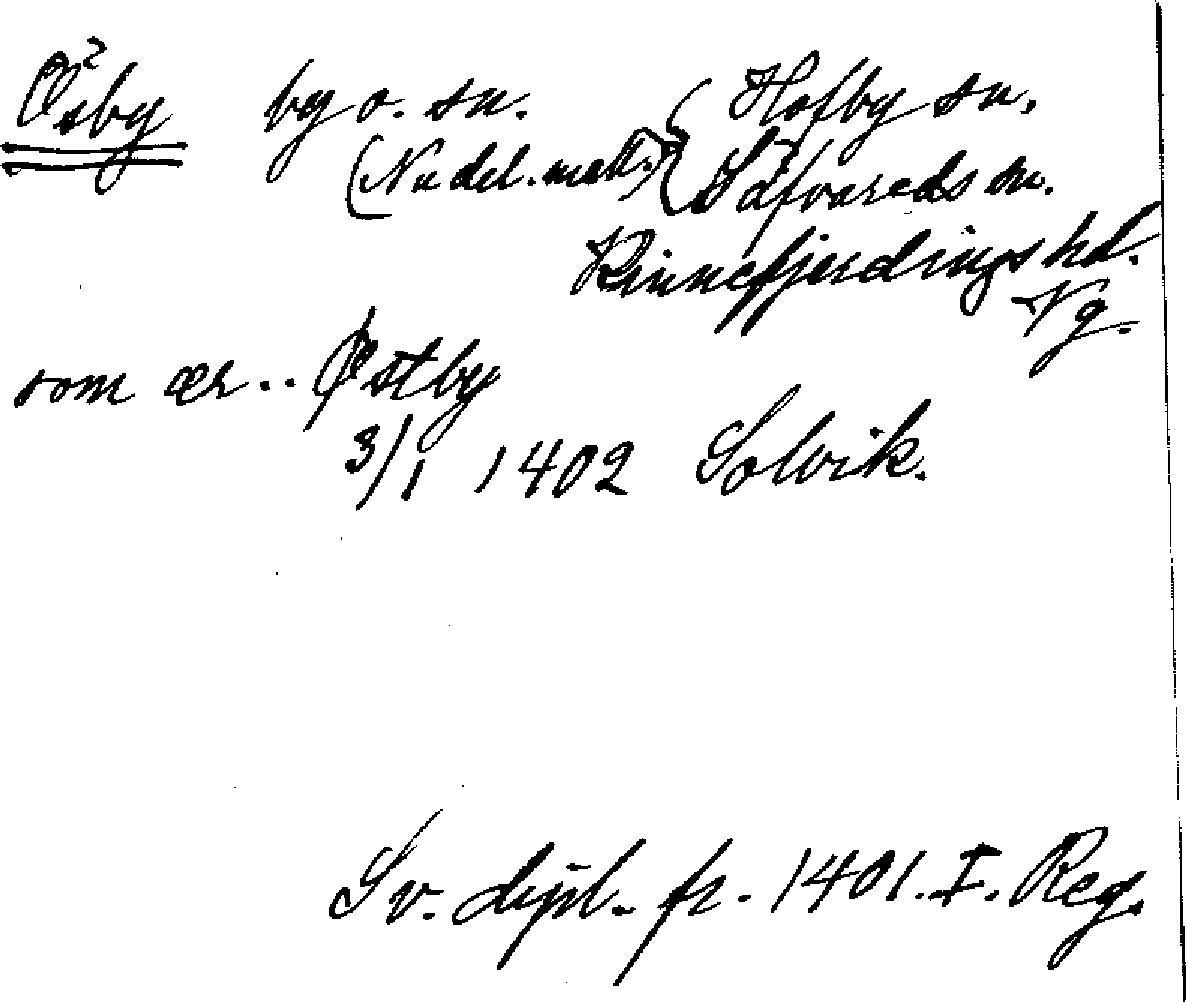 Ösby² by o. sn. { Hofby sn.
(Nu del. mell.) { Säfvareds sn.
Kinnefjerdings hd.
Vg.
som ær .. Østby
3/1 1402 Solvik.
Sv. dipl. fr. 1401. I. Reg.